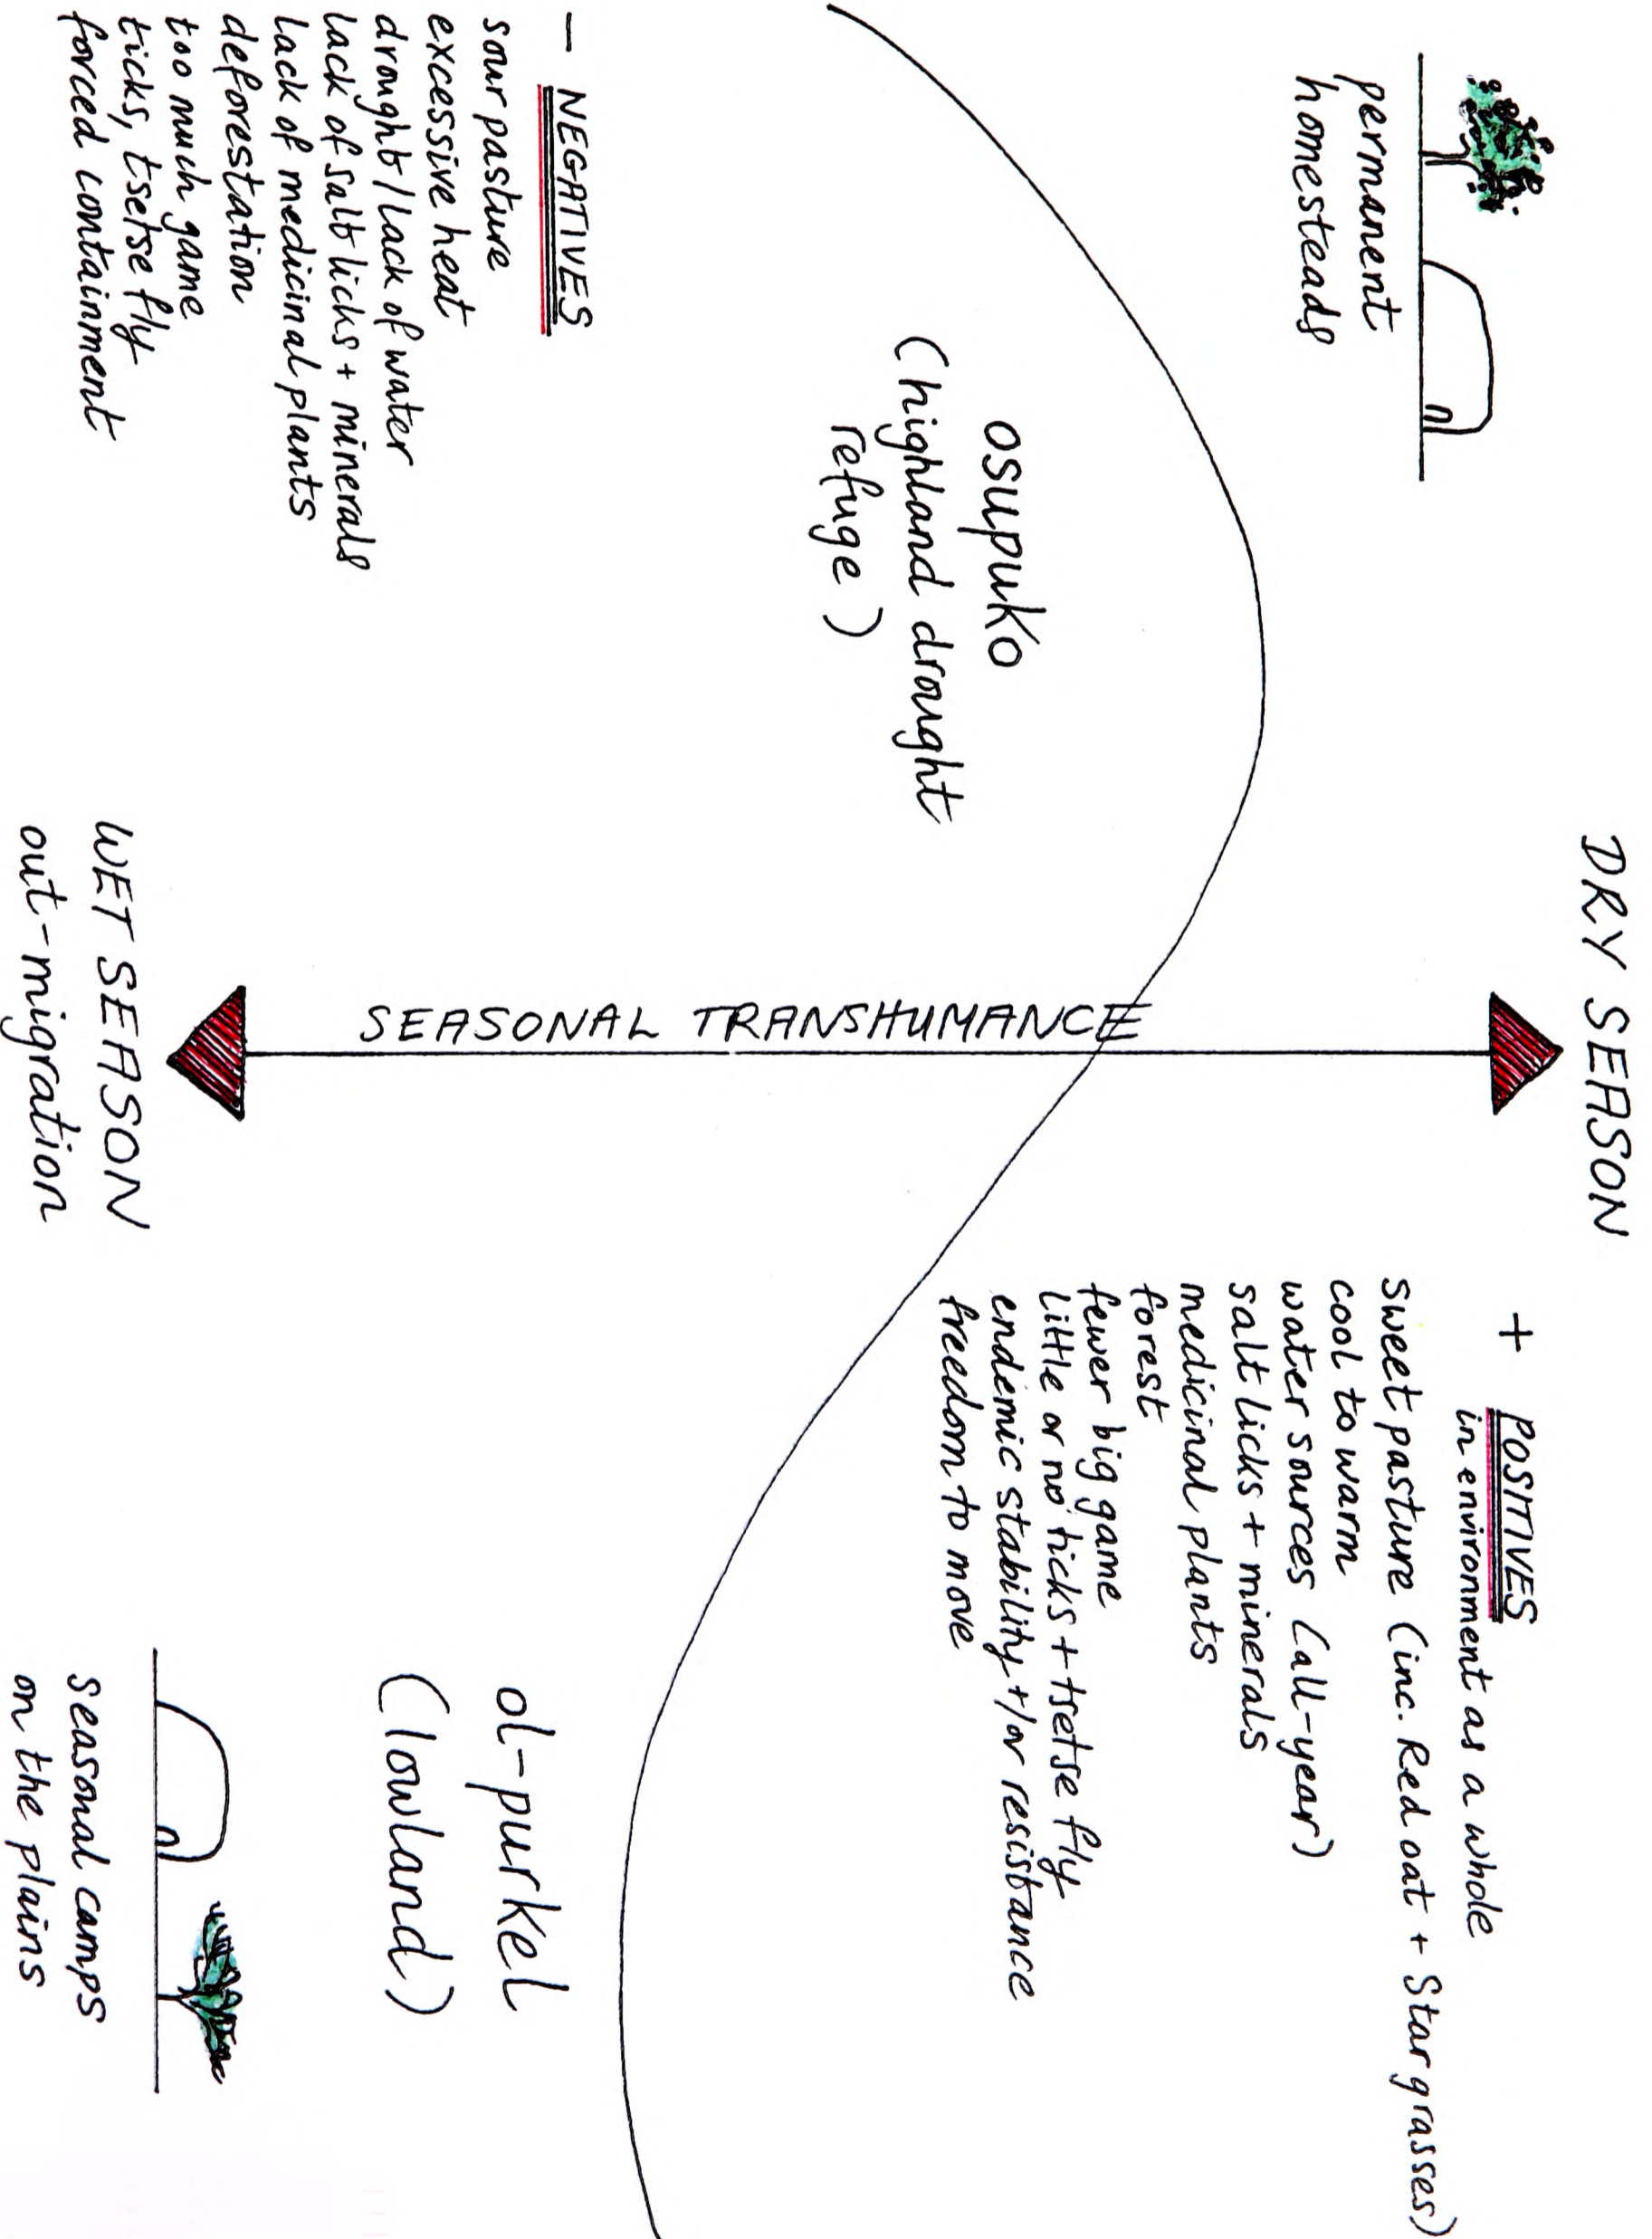 DRY SEASON
permanent
homesteads
+ POSITIVES
in environment as a whole
sweet pasture (inc. Red oat + Star grasses)
cool to warm
water sources (all-year)
salt licks + minerals
medicinal plants
forest
fewer big game
little or no ticks + tsetse fly
endemic stability +/or resistance
freedom to move
osupuko
(highland drought
refuge)
SEASONAL TRANSHUMANCE
- NEGATIVES
sour pasture
excessive heat
drought / lack of water
lack of salt licks + minerals
lack of medicinal plants
deforestation
too much game
ticks, tsetse fly
forced containment
ol-purkel
(lowland)
WET SEASON
out-migration
seasonal camps
on the plains